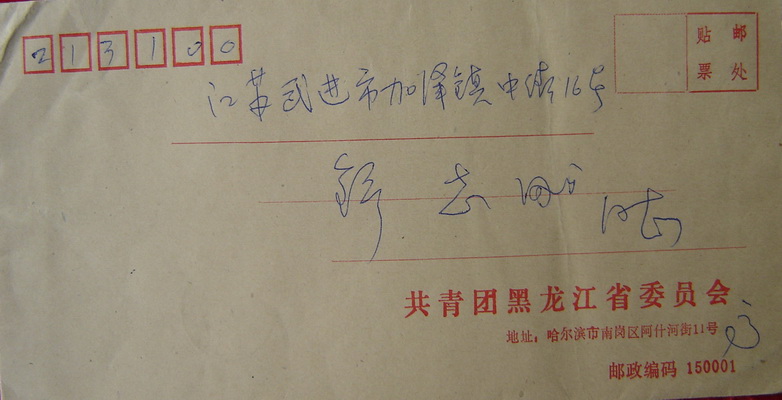 213100
贴邮
票处
江苏武进市加泽镇中街16号
舒志刚 同志
共青团黑龙江省委员会
地址：哈尔滨市南岗区阿什河街11号
邮政编码 150001